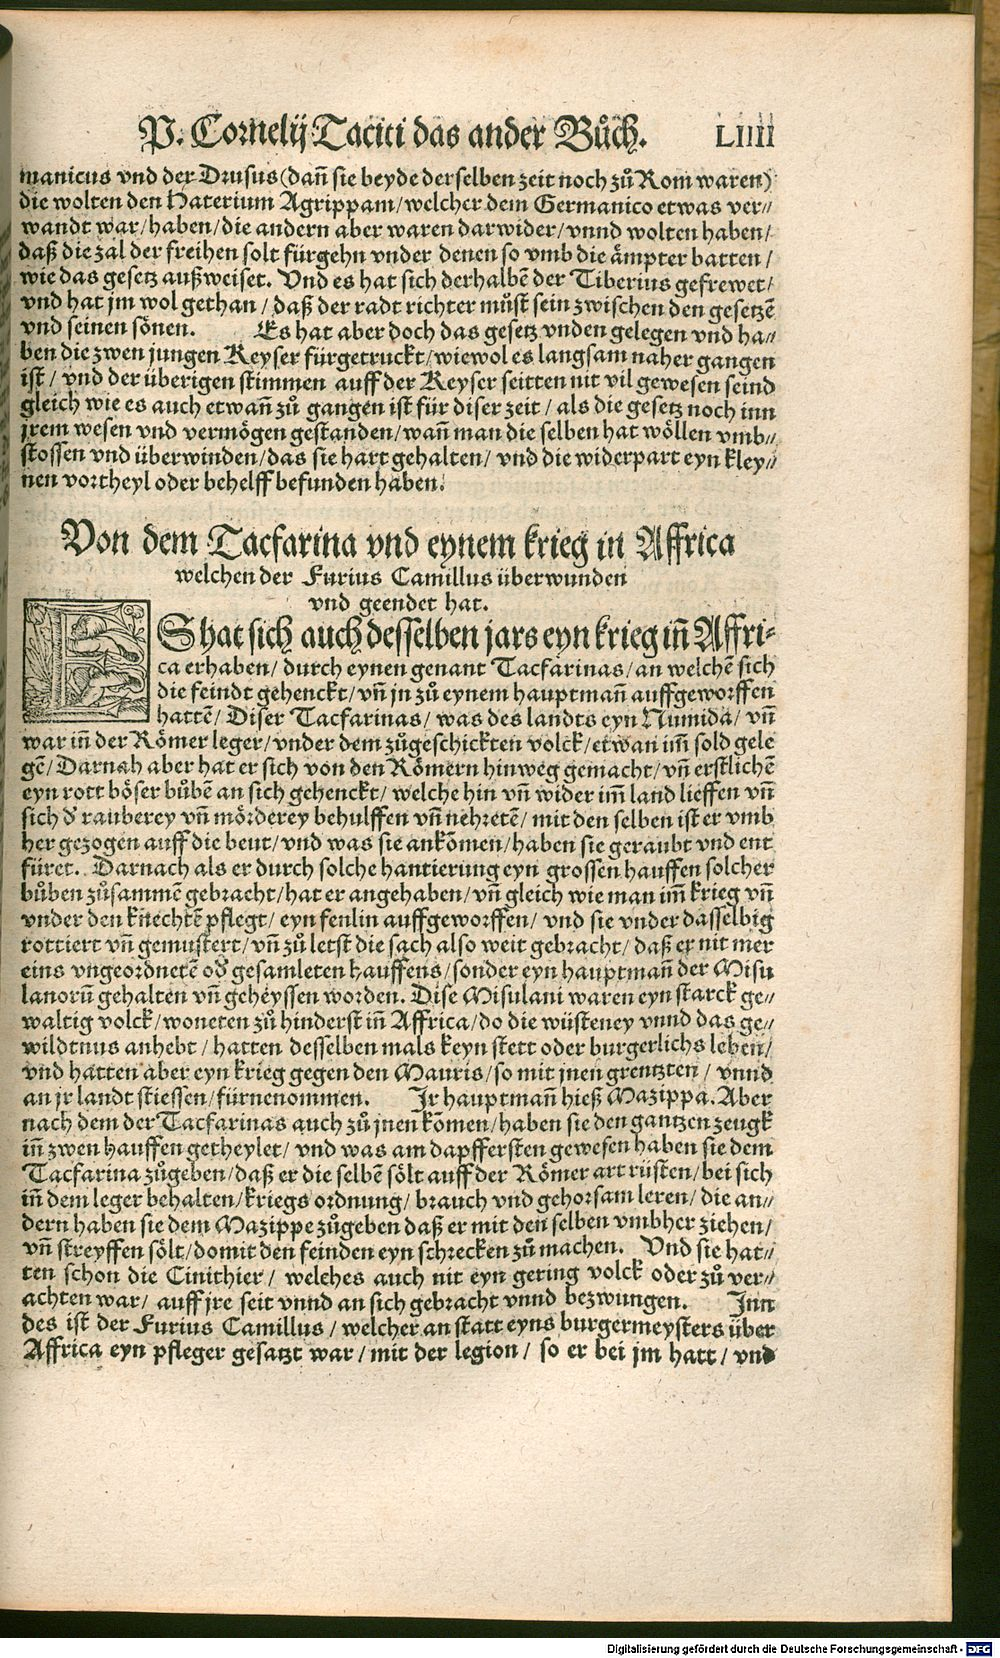 P. Cornelij Taciti das ander Bůch. LIIII
manicus vnd der Drusus (dañ sie beyde derselben zeit noch zů Rom waren)
die wolten den Haterium Agrippam/ welcher dem Germanico etwas ver⸗
wandt war/ haben/ die andern aber waren darwider/ vnnd wolten haben/
daß die zal der freihen solt fürgehn vnder denen so vmb die ämpter batten/
wie das gesetz außweiset. Vnd es hat sich derhalbē der Tiberius gefrewet/
vnd hat jm wol gethan/ daß der radt richter můst sein zwischen den gesetzē
vnd seinen sönen. Es hat aber doch das gesetz vnden gelegen vnd ha⸗
ben die zwen jungen Keyser fürgetruckt/ wiewol es langsam naher gangen
ist/ vnd der überigen stimmen auff der Keyser seitten nit vil gewesen seind
gleich wie es auch etwañ zů gangen ist für diser zeit/ als die gesetz noch inn
jrem wesen vnd vermögen gestanden/ wañ man die selben hat wöllen vmb⸗
stossen vnd überwinden/ das sie hart gehalten/ vnd die widerpart eyn kley⸗
nen vortheyl oder behelff befunden haben.
Von dem Tacfarina vnd eynem krieg in Affrica
welchen der Furius Camillus überwunden
vnd geendet hat.
ES hat sich auch desselben jars eyn krieg iñ Affri⸗
ca erhaben/ durch eynen genant Tacfarinas/ an welchē sich
die feindt gehenckt/ vñ jn zů eynem hauptmañ auffgeworffen
hattē/ Diser Tacfarinas/ was des landts eyn Numida/ vñ
war iñ der Römer leger/ vnder dem zůgeschickten volck/ etwan im̃ sold gele
gē/ Darnah aber hat er sich von den Römern hinweg gemacht/ vñ erstlichē
eyn rott böser bůbē an sich gehenckt/ welche hin vñ wider im̃ land lieffen vñ
sich d̄ rauberey vñ mörderey behulffen vñ nehretē/ mit den selben ist er vmb
her gezogen auff die beut/ vnd was sie ankōmen/ haben sie geraubt vnd ent
füret. Darnach als er durch solche hantierung eyn grossen hauffen solcher
bůben zůsammē gebracht/ hat er angehaben/ vñ gleich wie man im̃ krieg vñ
vnder den knechtē pflegt/ eyn fenlin auffgeworffen/ vnd sie vnder dasselbig
rottiert vñ gemustert/ vñ zů letst die sach also weit gebracht/ daß er nit mer
eins vngeordnetē od̄ gesamleten hauffens/ sonder eyn hauptmañ der Misu
lanorū gehalten vñ geheyssen worden. Dise Misulani waren eyn starck ge⸗
waltig volck/ woneten zů hinderst iñ Affrica/ do die wüsteney vnnd das ge⸗
wildtnus anhebt/ hatten desselben mals keyn stett oder burgerlichs leben/
vnd hatten aber eyn krieg gegen den Mauris/ so mit jnen grentzten/ vnnd
an jr landt stiessen/ fürnenommen. Jr hauptmañ hieß Mazippa. Aber
nach dem der Tacfarinas auch zů jnen kōmen/ haben sie den gantzen zeugk
iñ zwen hauffen getheylet/ vnd was am dapffersten gewesen haben sie dem
Tacfarina zůgeben/ daß er die selbē sölt auff der Römer art rüsten/ bei sich
iñ dem leger behalten/ kriegs ordnung/ brauch vnd gehorsam leren/ die an⸗
dern haben sie dem Mazippe zůgeben daß er mit den selben vmbher ziehen/
vñ streyffen sölt/ domit den feinden eyn schrecken zů machen. Vnd sie hat⸗
ten schon die Cinithier/ welches auch nit eyn gering volck oder zů ver⸗
achten war/ auff jre seit vnnd an sich gebracht vnnd bezwungen. Jnn
des ist der Furius Camillus/ welcher an statt eyns burgermeysters über
Affrica eyn pfleger gesatzt war/ mit der legion/ so er bei jm hatt/ vnd
Digitalisierung gefördert durch die Deutsche Forschungsgemeinschaft - DFG